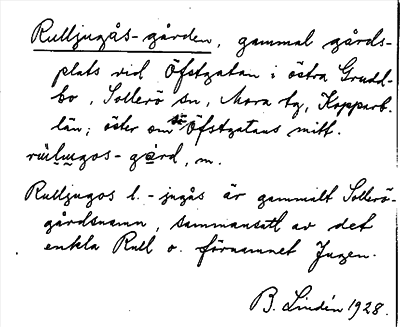 Rulljugås-gården, gammal gårds-
plats vid Öfstgatan i östra Grudd-
bo, Sollerö sn, Mora tg, Kopparb.
län; öster om Öfstgatans mitt.
m.
Rulljugos l. -jugås är gammalt Sollerö-
gårdsnamn, sammansatt av det
enkla Rull o. förnamnet Jugen.
B. Lindén 1928.